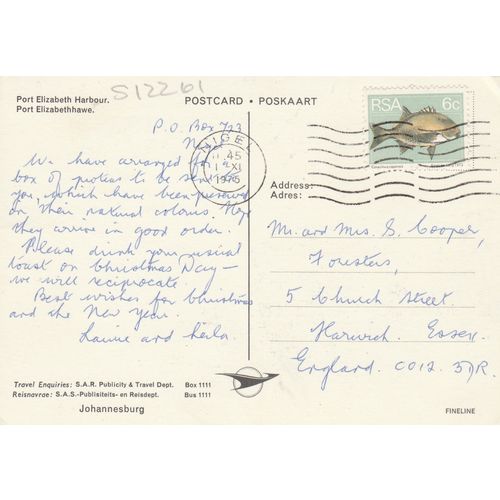 S12261
Port Elizabeth Harbour.
Port Elizabethhawe.
POSTCARD • POSKAART
RSA 6c
P.O. Box
NIGEL
11.45
XI
1976
We have arranged for
box of proteas to be sent to
you, which have been preserved
in their natural colours. Hope
they arrive in good order.
Please drink your usual
toast on Christmas Day –
we will reciprocate.
Best wishes for Christmas
and the New Year.
and
Address:
Adres:
Mr. and Mrs. S. Cooper,
Foresters,
5 Church Street.
Harwich. Essex.
England. CO12. 3DR.
Travel Enquiries: S.A.R. Publicity & Travel Dept. Box 1111
Reisnavrae: S.A.S.-Publisiteits- en Reisdept. Bus 1111
Johannesburg
FINELINE